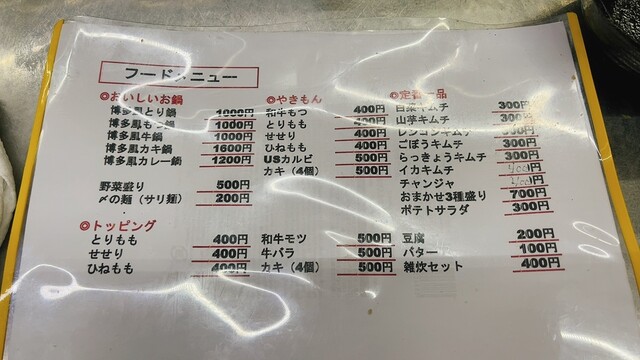 フードメニュー
◎おいしいお鍋
博多風とり鍋 1000円
博多風もつ鍋 1000円
博多風牛鍋 1000円
博多風カキ鍋 1600円
博多風カレー鍋 1200円
野菜盛り 500円
〆の麺（サリ麺） 200円
◎やきもん
和牛もつ 400円
とりもも 400円
せせり 400円
ひねもも 400円
USカルビ 500円
カキ（4個） 500円
◎定番一品
白菜キムチ 300円
山芋キムチ 300円
レンコンキムチ
ごぼうキムチ 300円
らっきょうキムチ 300円
イカキムチ
チャンジャ
おまかせ3種盛り 700円
ポテトサラダ 300円
◎トッピング
とりもも 400円
せせり 400円
ひねもも 400円
和牛モツ 500円
牛バラ 500円
カキ（4個） 500円
豆腐 200円
バター 100円
雑炊セット 400円